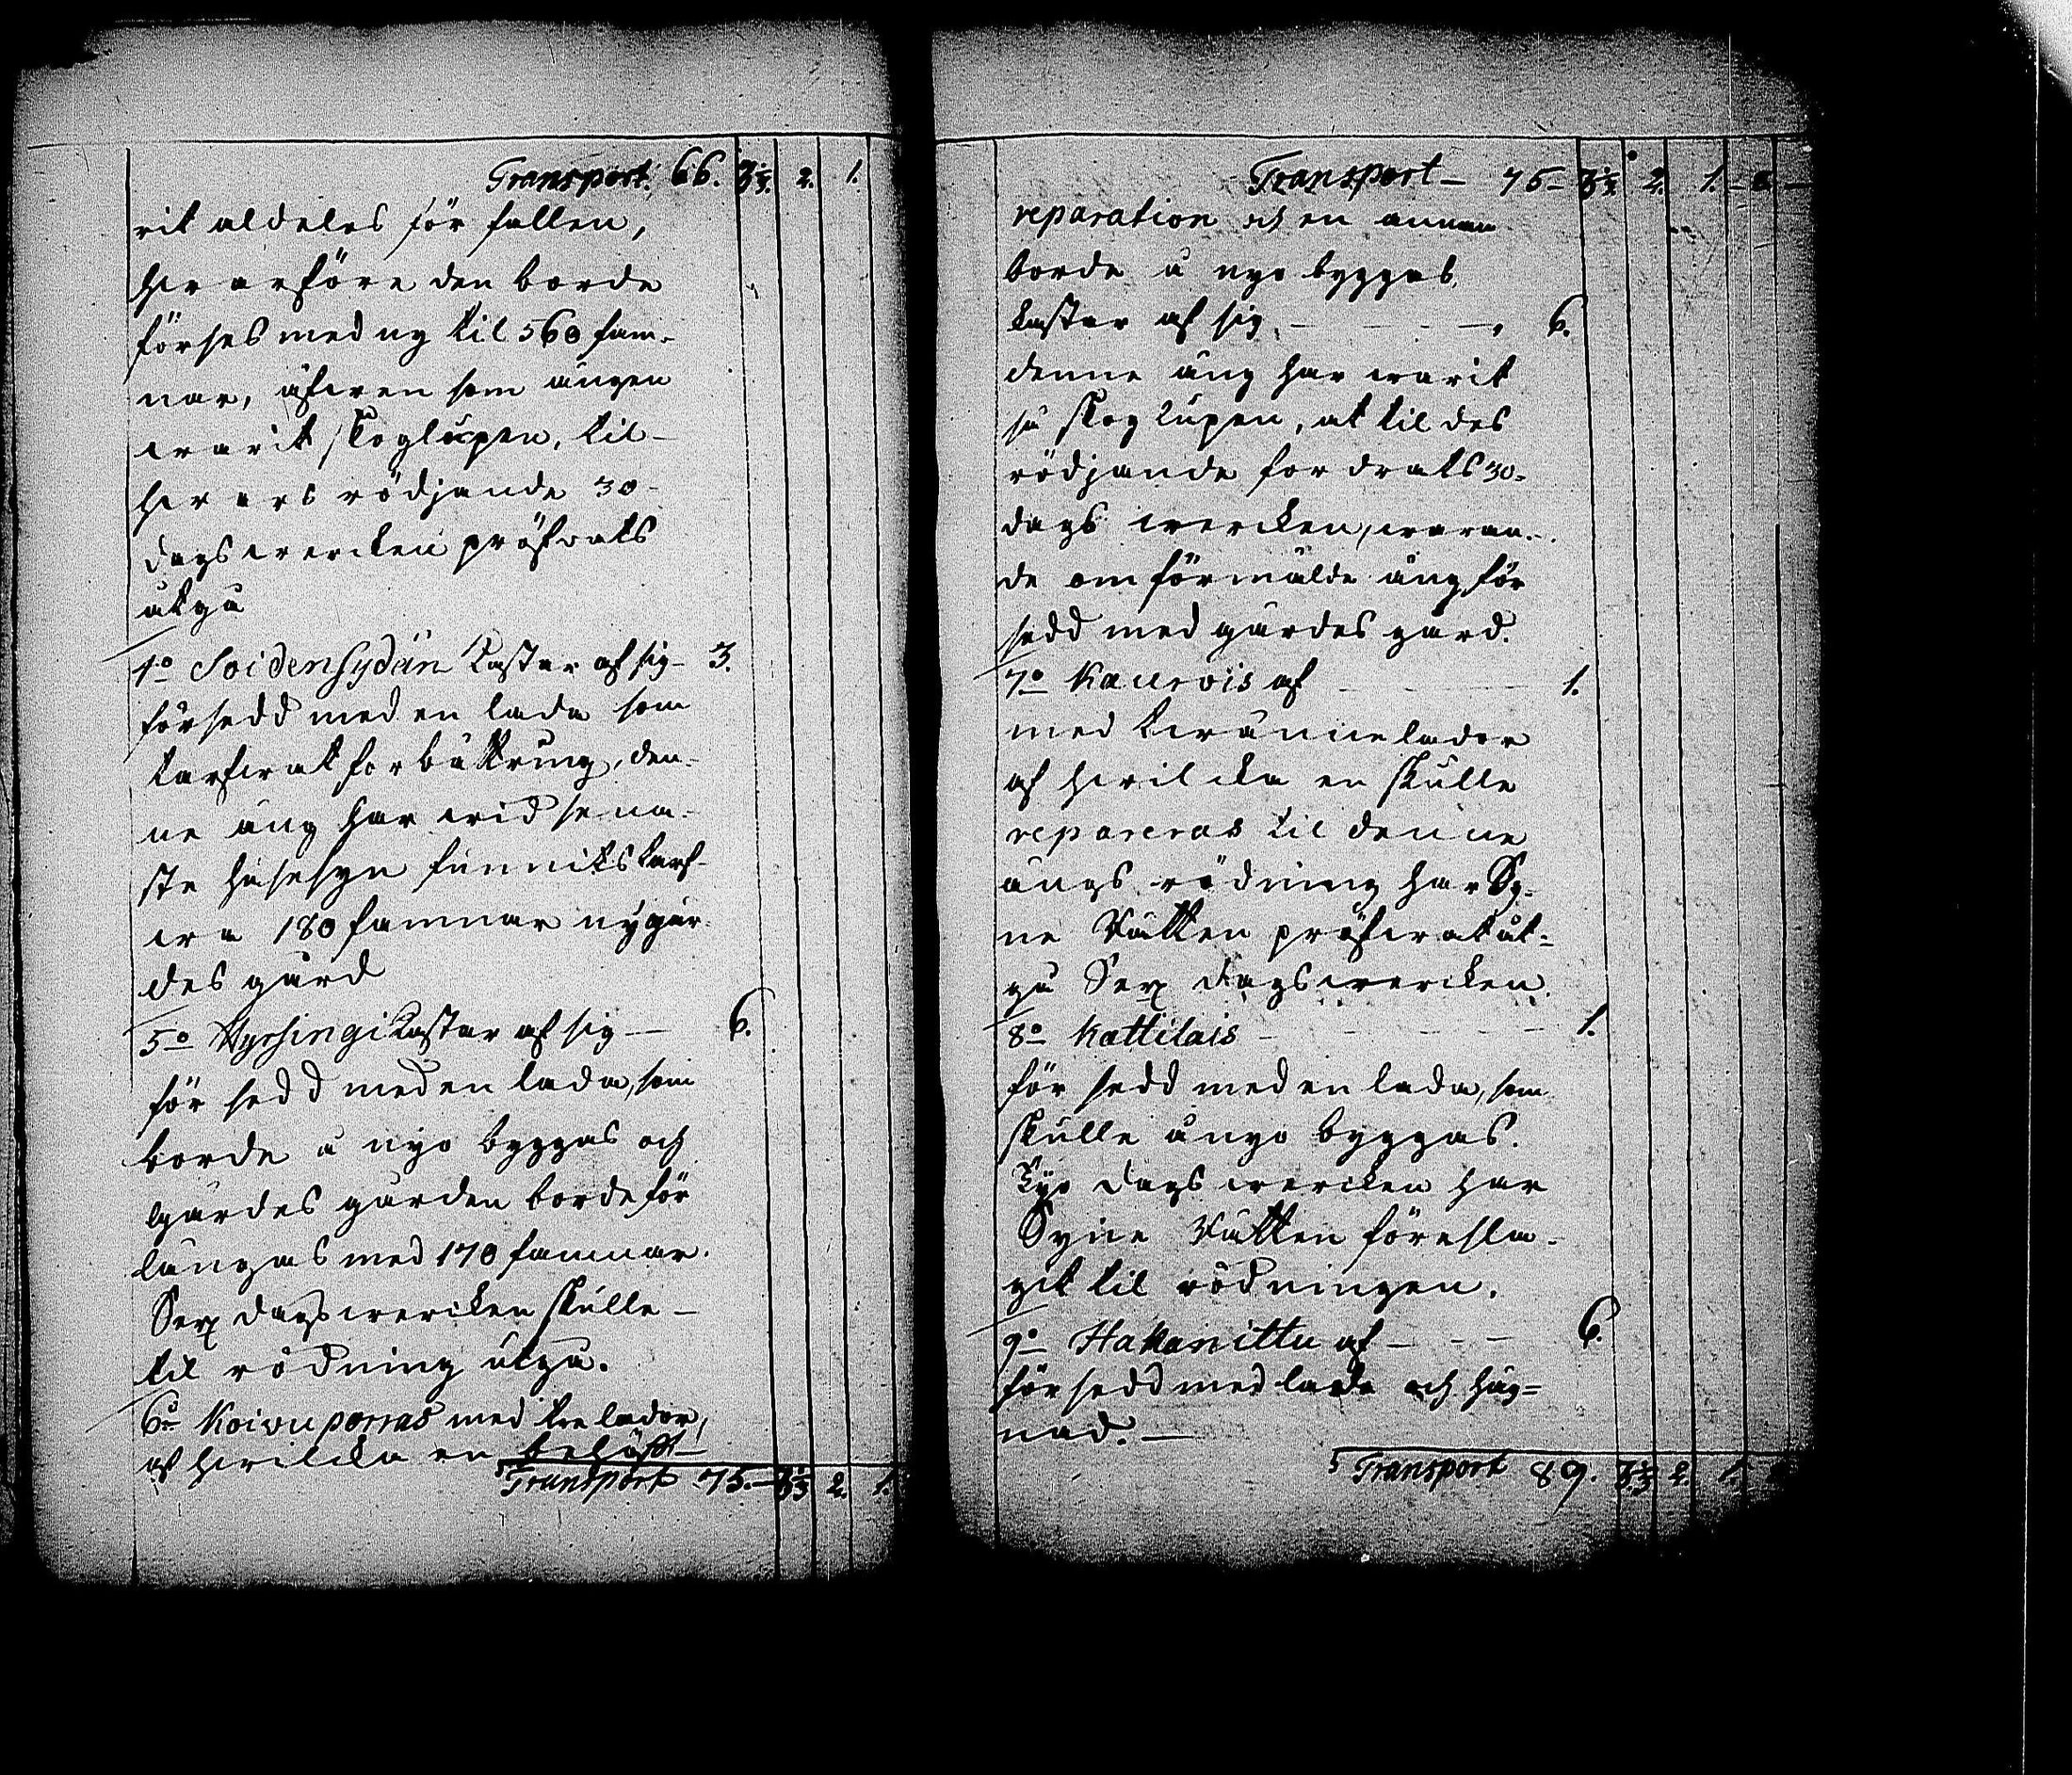 Transport. 66. 3⅓. 2. 1.
rit aldeles förfallen,
hvarföre den borde
förses med ny til 560 fam-
nar, äfven som ängen
warit skoglupen, til
hvars rödjande 30
dagswercken pröfvats
åtgå
4o Soidensydän kastar af sig 3.
försedd med en lada som
tarfvat förbättring, den-
ne äng har wid sena-
ste husesyn funnits tarf-
wa 180 famnar ny gär-
des gård
5o Hyrsingi kastar af sig — 6.
försedd med en lada, som
borde å nyo byggas och
gärdes gården borde för
längas med 170 famnar.
Sex dagswercken skulle
til rödning åtgå.
6o Koivuporras med tre lador,
af hvilcka en behöft
Transport 75. 3⅓ 2. 1.
Transport — 75 — 3⅓ 2. 1.
reparation och en annan
borde å nyo byggas,
kastar af sig — 6.
denne äng har warit
så skoglupen, at til des
rödjande fordrats 30
dags wercken, waran-
de omförmälde äng för
sedd med gärdes gård.
7o Kaurois af — 1.
med tvänne lador
af hvilcka en skulle
repareras til denne
ängs rödning har Sy-
ne Rätten pröfvat åt-
gå Sex dagswercken.
8o Kattilais — 1.
försedd med en lada, som
skulle å nyo byggas.
Tyo dags wercken har
Syne Rätten föresla-
git til rödningen.
9o Hakanittu af — 6.
försedd med lada och häg-
nad. —
Transport 89. 3⅓ 2. 1.